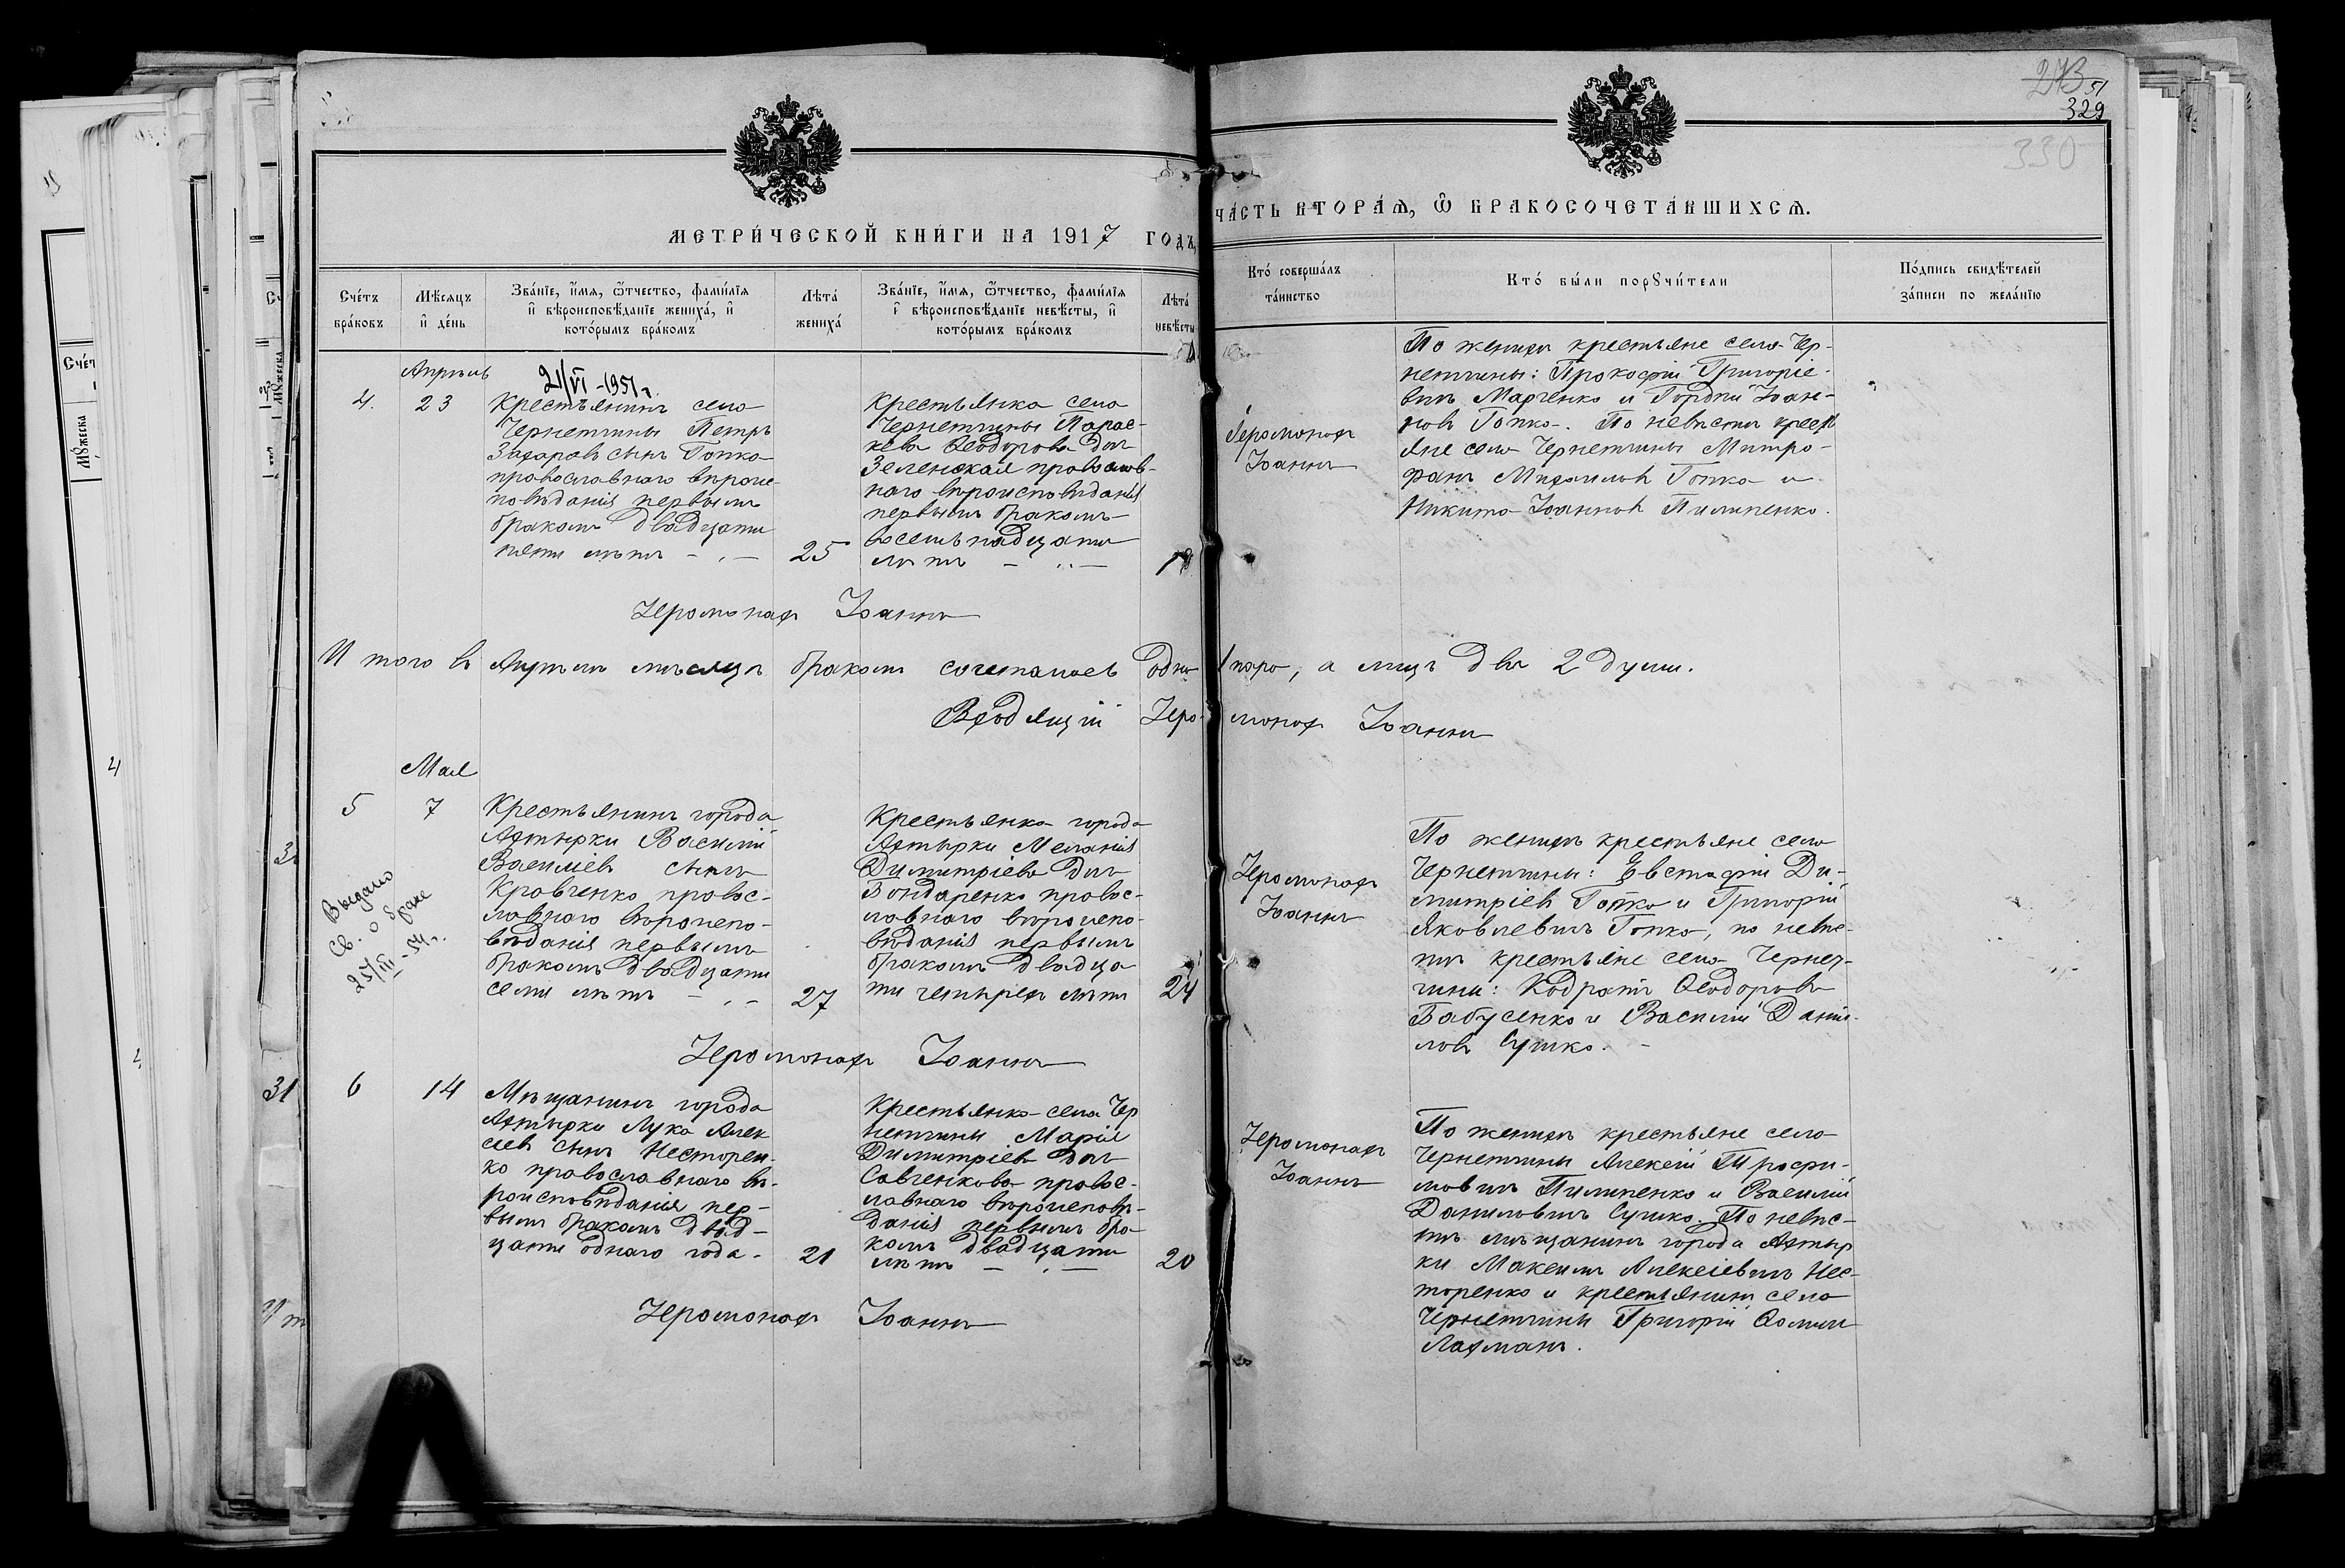 273 51
329
330
МЕТРИ́ЧЕСКОЙ КНИ́ГИ НА 1917 ГОДЪ,
ЧА́СТЬ ВТОРА́Я, Ѽ БРАКОСОЧЕТА́ВШИХСЯ.
Сче́тъ бра́ковъ
Мѣ́сяцъ и҆ де́нь
Зва́нїе, и҆́мя, ѻ҆́тчество, фами́лїя и҆ вѣроисповѣ́данїе жениха́, и҆ кото́рымъ бра́комъ
Лѣта́ жениха́
Зва́нїе, и҆́мя, ѻ҆́тчество, фами́лїя и҆ вѣроисповѣ́данїе невѣ́сты, и҆ кото́рымъ бра́комъ
Лѣта́ невѣ́сты
Кто́ соверша́лъ та́инство
Кто́ бы́ли порꙋчи́тели
По́дпись свидѣ́телей за́писи по жела́нїю
Апрѣль
21/VI-1951г.
4.
23
Крестьянинъ села
Чернетчины Петръ
Захаровъ сынъ Гопка
православнаго вѣроис
повѣданія первымъ
бракомъ двадцати
пяти лѣтъ
25
Крестьянка села
Чернетчины Парас-
кева Ѳеодорова доч
Зеленская православ-
наго вѣроисповѣданія
первымъ бракомъ
восемьнадцати
лѣтъ
18
Іеромонах
Іоаннъ
По женихѣ крестьяне села Чер-
нетчины: Прокофій Григоріе-
вичъ Марченко и Гордѣй Іоан-
новъ Гопка. По невѣстѣ крест
яне села Чернетчины Митро-
фанъ Михаиловъ Гопка и
Никита Іоанновъ Пилипенко.
Іеромонах Іоаннъ
Итого въ Апрѣлѣ мѣсяцѣ бракомъ сочеталось одна 1 пара, а лицъ двѣ 2 души.
Іеромонах Іоаннъ
Мая
5
7
Выдано
св. о браке
25/III-54г.
Крестьянинъ города
Ахтырки Василій
Василіевъ сынъ
Кравченко правос-
лавнаго вѣроиспо-
вѣданія первымъ
бракомъ двадцати
семи лѣтъ
27
Крестьянка города
Ахтырки Меланія
Димитріева доч
Бондаренко правос-
лавнаго вѣроиспо-
вѣданія первымъ
бракомъ двадца
ти четырех лѣтъ
24
Іеромонах
Іоаннъ
По женихѣ крестьяне села
Чернетчины: Евстафій Ди-
митріевъ Гопка и Григорій
Яковлевичъ Гопка, по невѣс-
тѣ крестьяне села Чернет-
чины: Кодратъ Ѳеодоровъ
Бабусенко и Василій Дани-
ловъ Сушко.
Іеромонах Іоаннъ
31
6
14
Мѣщанинъ города
Ахтырки Лука Алек
сіевъ сынъ Несторен-
ко православнаго вѣ-
роисповѣданія пер-
вымъ бракомъ двад-
цати однаго года.
21
Крестьянка села Чер
нетчины Марія
Димитріева доч
Савченкова правос-
лавнаго вѣроисповѣ-
данія первымъ бра-
комъ двадцати
лѣтъ
20
Іеромонах
Іоаннъ
По женихѣ крестьяне села
Чернетчины Алексій Трофи-
мовичъ Пилипенко и Василій
Даниловичъ Сушко. По невѣс-
тѣ мѣщанинъ города Ахтыр
ки Максимъ Алексіевичъ Нес-
торенко и крестьянинъ села
Чернетчины Григорій Ѳомин
Лахманъ.
Іеромонах Іоаннъ